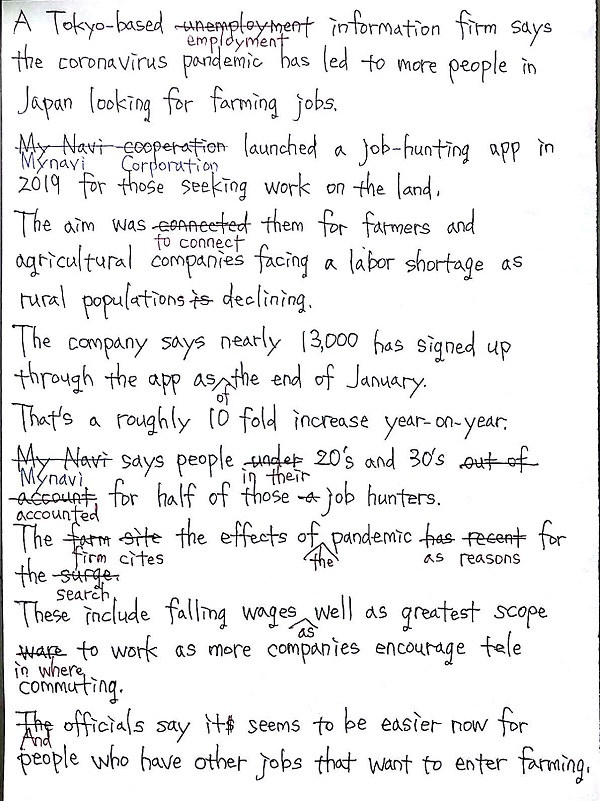 A Tokyo-based unemployment information firm says
employment
the coronavirus pandemic has led to more people in
Japan looking for farming jobs.
My Navi cooperation launched a job-hunting app in
Mynavi Corporation
2019 for those seeking work on the land.
The aim was connected them for farmers and
to connect
agricultural companies facing a labor shortage as
rural populations is declining.
The company says nearly 13,000 has signed up
through the app as the end of January.
of
That's a roughly 10 fold increase year-on-year.
My Navi says people under 20's and 30's out of
Mynavi in their
account for half of those a job hunters.
accounted
The farm site the effects of pandemic has recent for
firm cites the as reasons
the surge.
search
These include falling wages well as greatest scope
as
ware to work as more companies encourage tele
in where
commuting.
The officials say its seems to be easier now for
And
people who have other jobs that want to enter farming.